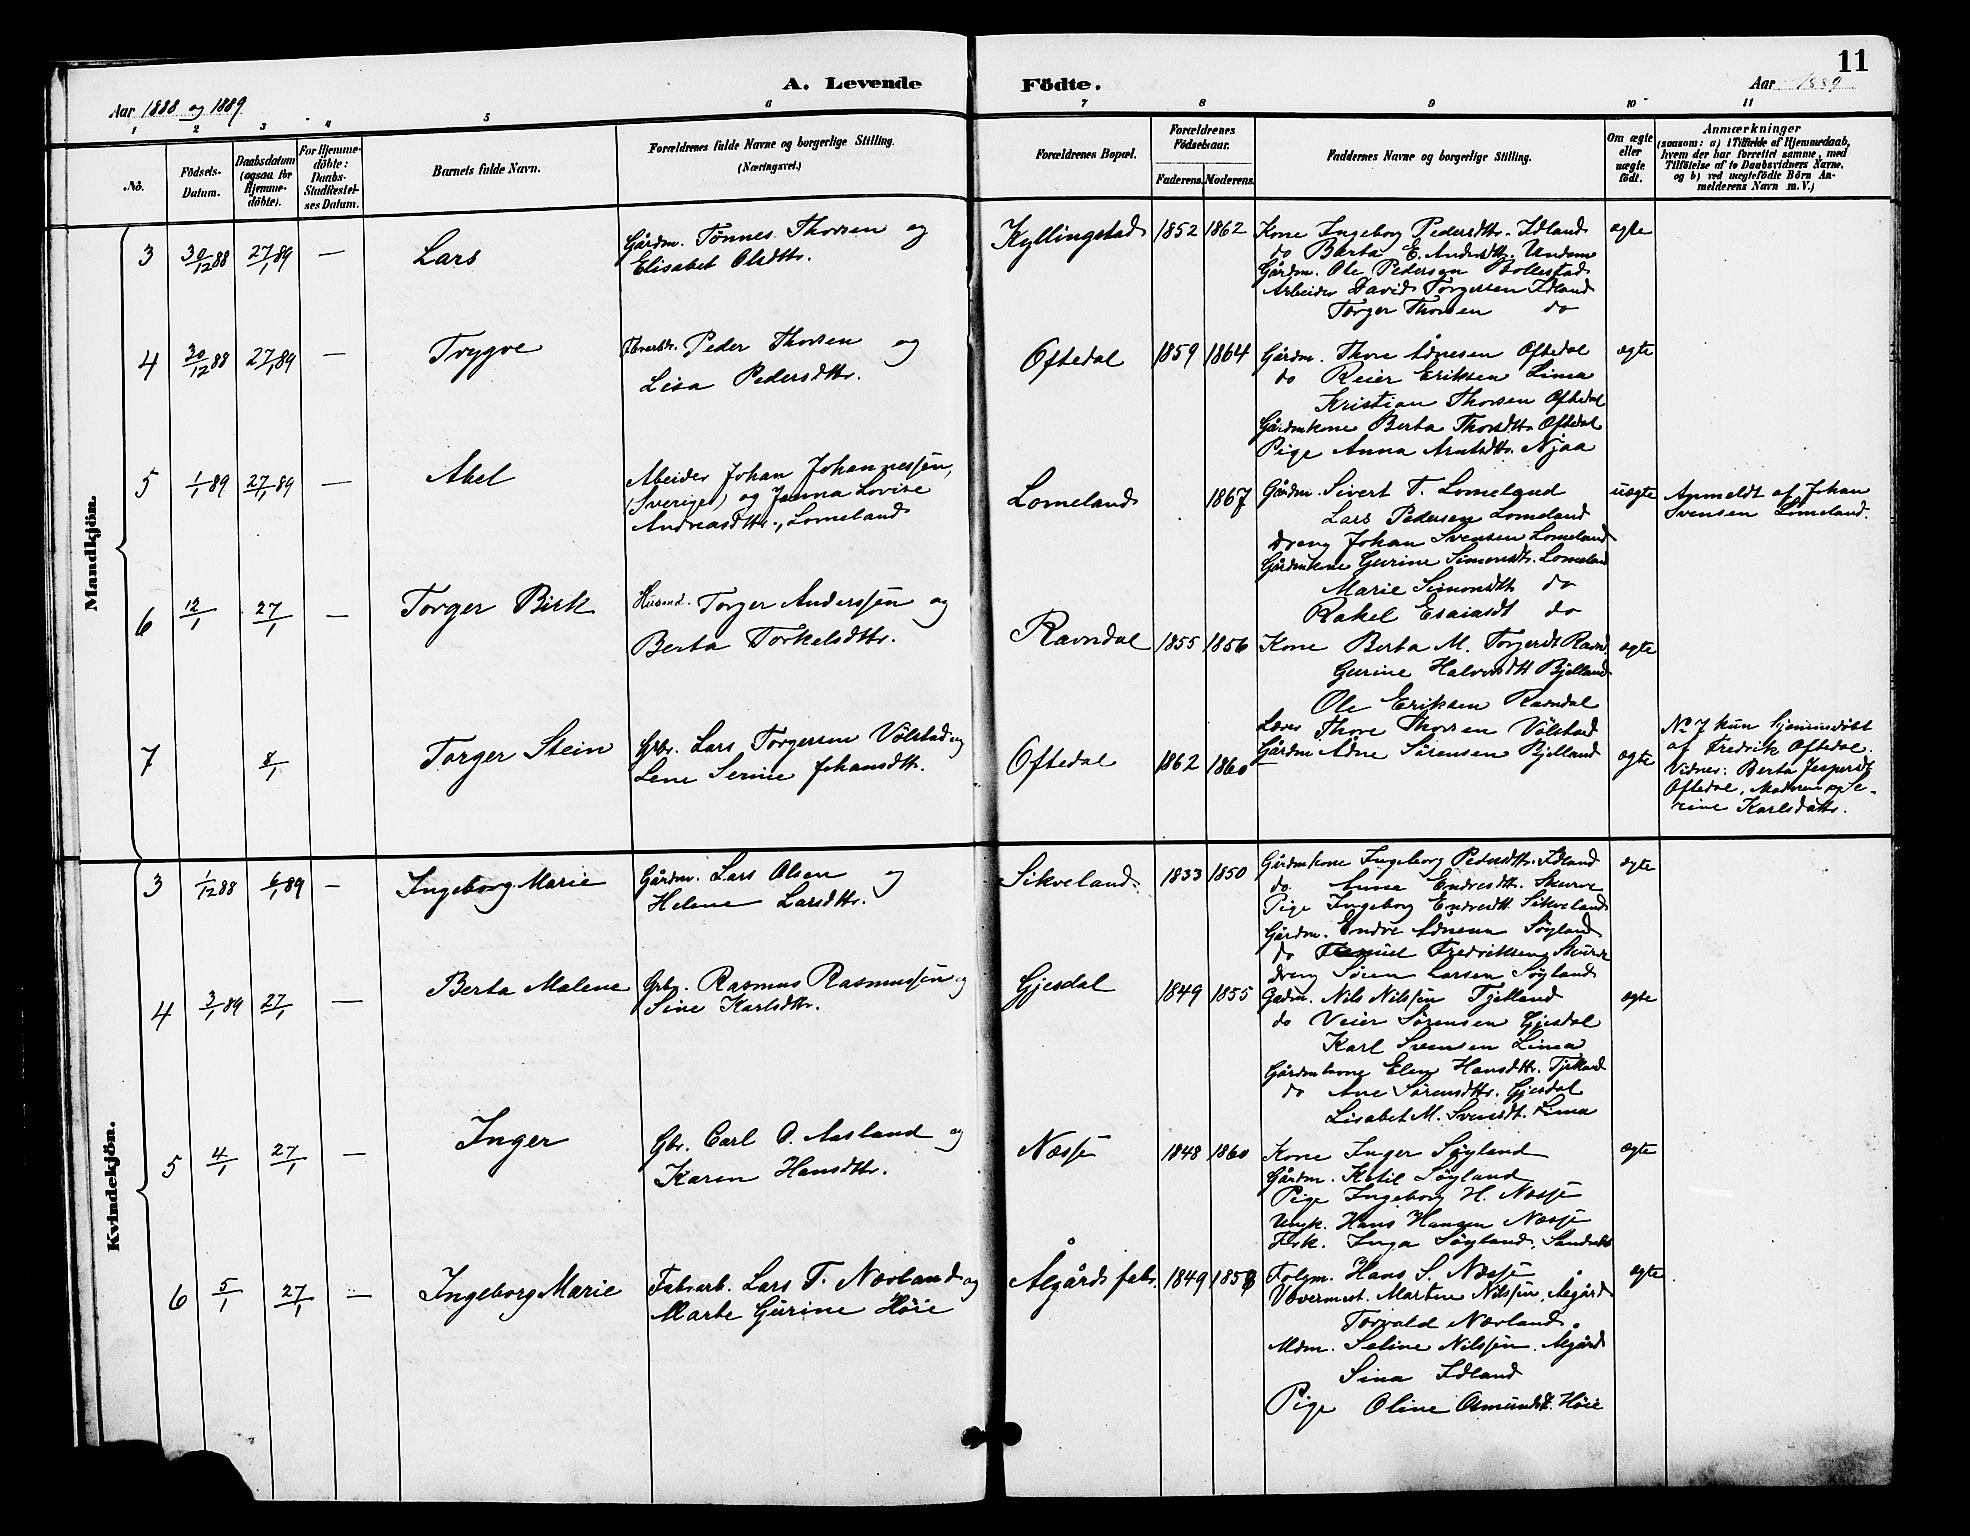 11
A. Levende Födte.
Aar 1888 og 1889
Aar 1889
1 2 3 4 5 6 7 8 9 10 11
No.
Födsels-
Datum.
Daabsdatum
(ogsaa for
Hjemme-
döbte).
For Hjemme-
döbte:
Daabs-
Stadfæstel-
ses Datum.
Barnets fulde Navn.
Forældrenes fulde Navne og borgerlige Stilling.
(Næringsvei.)
Forældrenes Bopæl.
Forældrenes
Födselsaar.
Faderens. Moderens.
Faddernes Navne og borgerlige Stilling.
Om ægte
eller
uægte
födt.
Anmærkninger
(saasom: a) i Tilfælde af Hjemmedaab,
hvem der har forrettet samme, med
Tilföielse af to Daabsvidners Navne,
og b) ved uægtefödte Börn An-
melderens Navn m. V.)
Mandkjön.
3 30/12 88 27/1 89 — Lars
Gårdm. Tönnes Thorsen og
Elisabet Olsdttr.
Kyllingstad 1852 1862
Kone Ingeborg Pedersdttr. Idland
do Berta E. Andersdttr.
Gårdm. Ole Pedersen Bollestad
Arbeider David Torgersen Idland
Torger Thorsen do
ægte
4 30/12 88 27/1 89 — Trygve
Peder Thorsen og
Lisa Pedersdttr.
Oftedal 1859 1864
Gårdm. Thore Ådnesen Oftedal
do Reier Eriksen Lima
Kristian Thorsen Oftedal
Gårdmkone Berta Thorsdttr. Oftedal
Pige Anna Arntsdttr. Njaa
ægte
5 1/1 89 27/1 89 — Abel
Abeider Johan Johannessen,
(Sverige) og Janna Lovise
Andreasdttr., Lomeland
Lomeland 1867
Gårdm. Sivert T. Lomeland
Lars Pedersen Lomeland
Dreng Johan Svensen Lomeland
Gårdmkone Gurine Simonsdtr. Lomeland
Marie Simonsdtt. do
Rakel Esaiasdt do
uægte
Anmeldt af Johan
Svensen Lomeland.
6 12/1 27/1 — Torger Birk
Husmd. Torger Anderssen og
Berta Torkelsdttr.
Ravndal 1855 1856
Kone Berta M. Torgersdt Ravnd
Gurine Halvorsdtt Bjelland
Ole Eriksen Ravndal
Lærer Thore Thorsen Völstad
Gårdm Adne Sörensen Bjelland
ægte
7 8/1 Torger Stein
Grbr. Lars Torgersen Völstad og
Lene Serine Johansdttr.
Oftedal 1862 1860
ægte
No 7 kun hjemmedöbt
af Fredrik Oftedal.
Vidner: Berta Jespersdt
Oftedal, Moderen og Se-
rine Karlsdattr.
Kvindekjön.
3 1/12 88 6/1 89 — Ingeborg Marie
Gårdm. Lars Olsen og
Helene Larsdttr.
Sikveland 1833 1850
Gårdmkone Ingeborg Pedersdttr. Idland
do Anna Endresdttr. Skurve
Pige Ingeborg Endresdtt Sikveland
Gårdm. Endre Ådnesen Söyland
do Fredriksen Skurve
Dreng Sören Larsen Söyland
ægte
4 3/1 89 27/1 — Berta Malene
Grbr. Rasmus Rasmussen og
Sine Karlsdttr.
Gjesdal 1849 1855
Grdm. Nils Nilssen Fjelland
do Veier Sörensen Gjesdal
Karl Svensen Lima
Gårdmkone Elen Hansdttr. Fjelland
do Ane Sörensdttr. Gjesdal
Lisabet M. Svensdt. Lima
ægte
5 4/1 27/1 — Inger
Gbr. Carl O. Aasland og
Karen Hansdttr.
Næsse 1848 1860
Kone Inger Söyland
Gårdm. Ketil Söyland
Pige Ingeborg H. Næsse
Ungk. Hans Hansen Næsse
Frk. Inga Söyland, Sandnes
ægte
6 5/1 27/1 — Ingeborg Marie
Fabrarb. Lars T. Nærland og
Marte Gurine Höie
Ålgårds fabr. 1849 1858
Folgm. Hans S. Næsse
Vævermest. Martin Nilssen, Ålgård
Torvald Nærland
Mdm. Seline Nilssen, Ålgård
Sina Idland
Pige Oline Osmundsdt. Höie
ægte